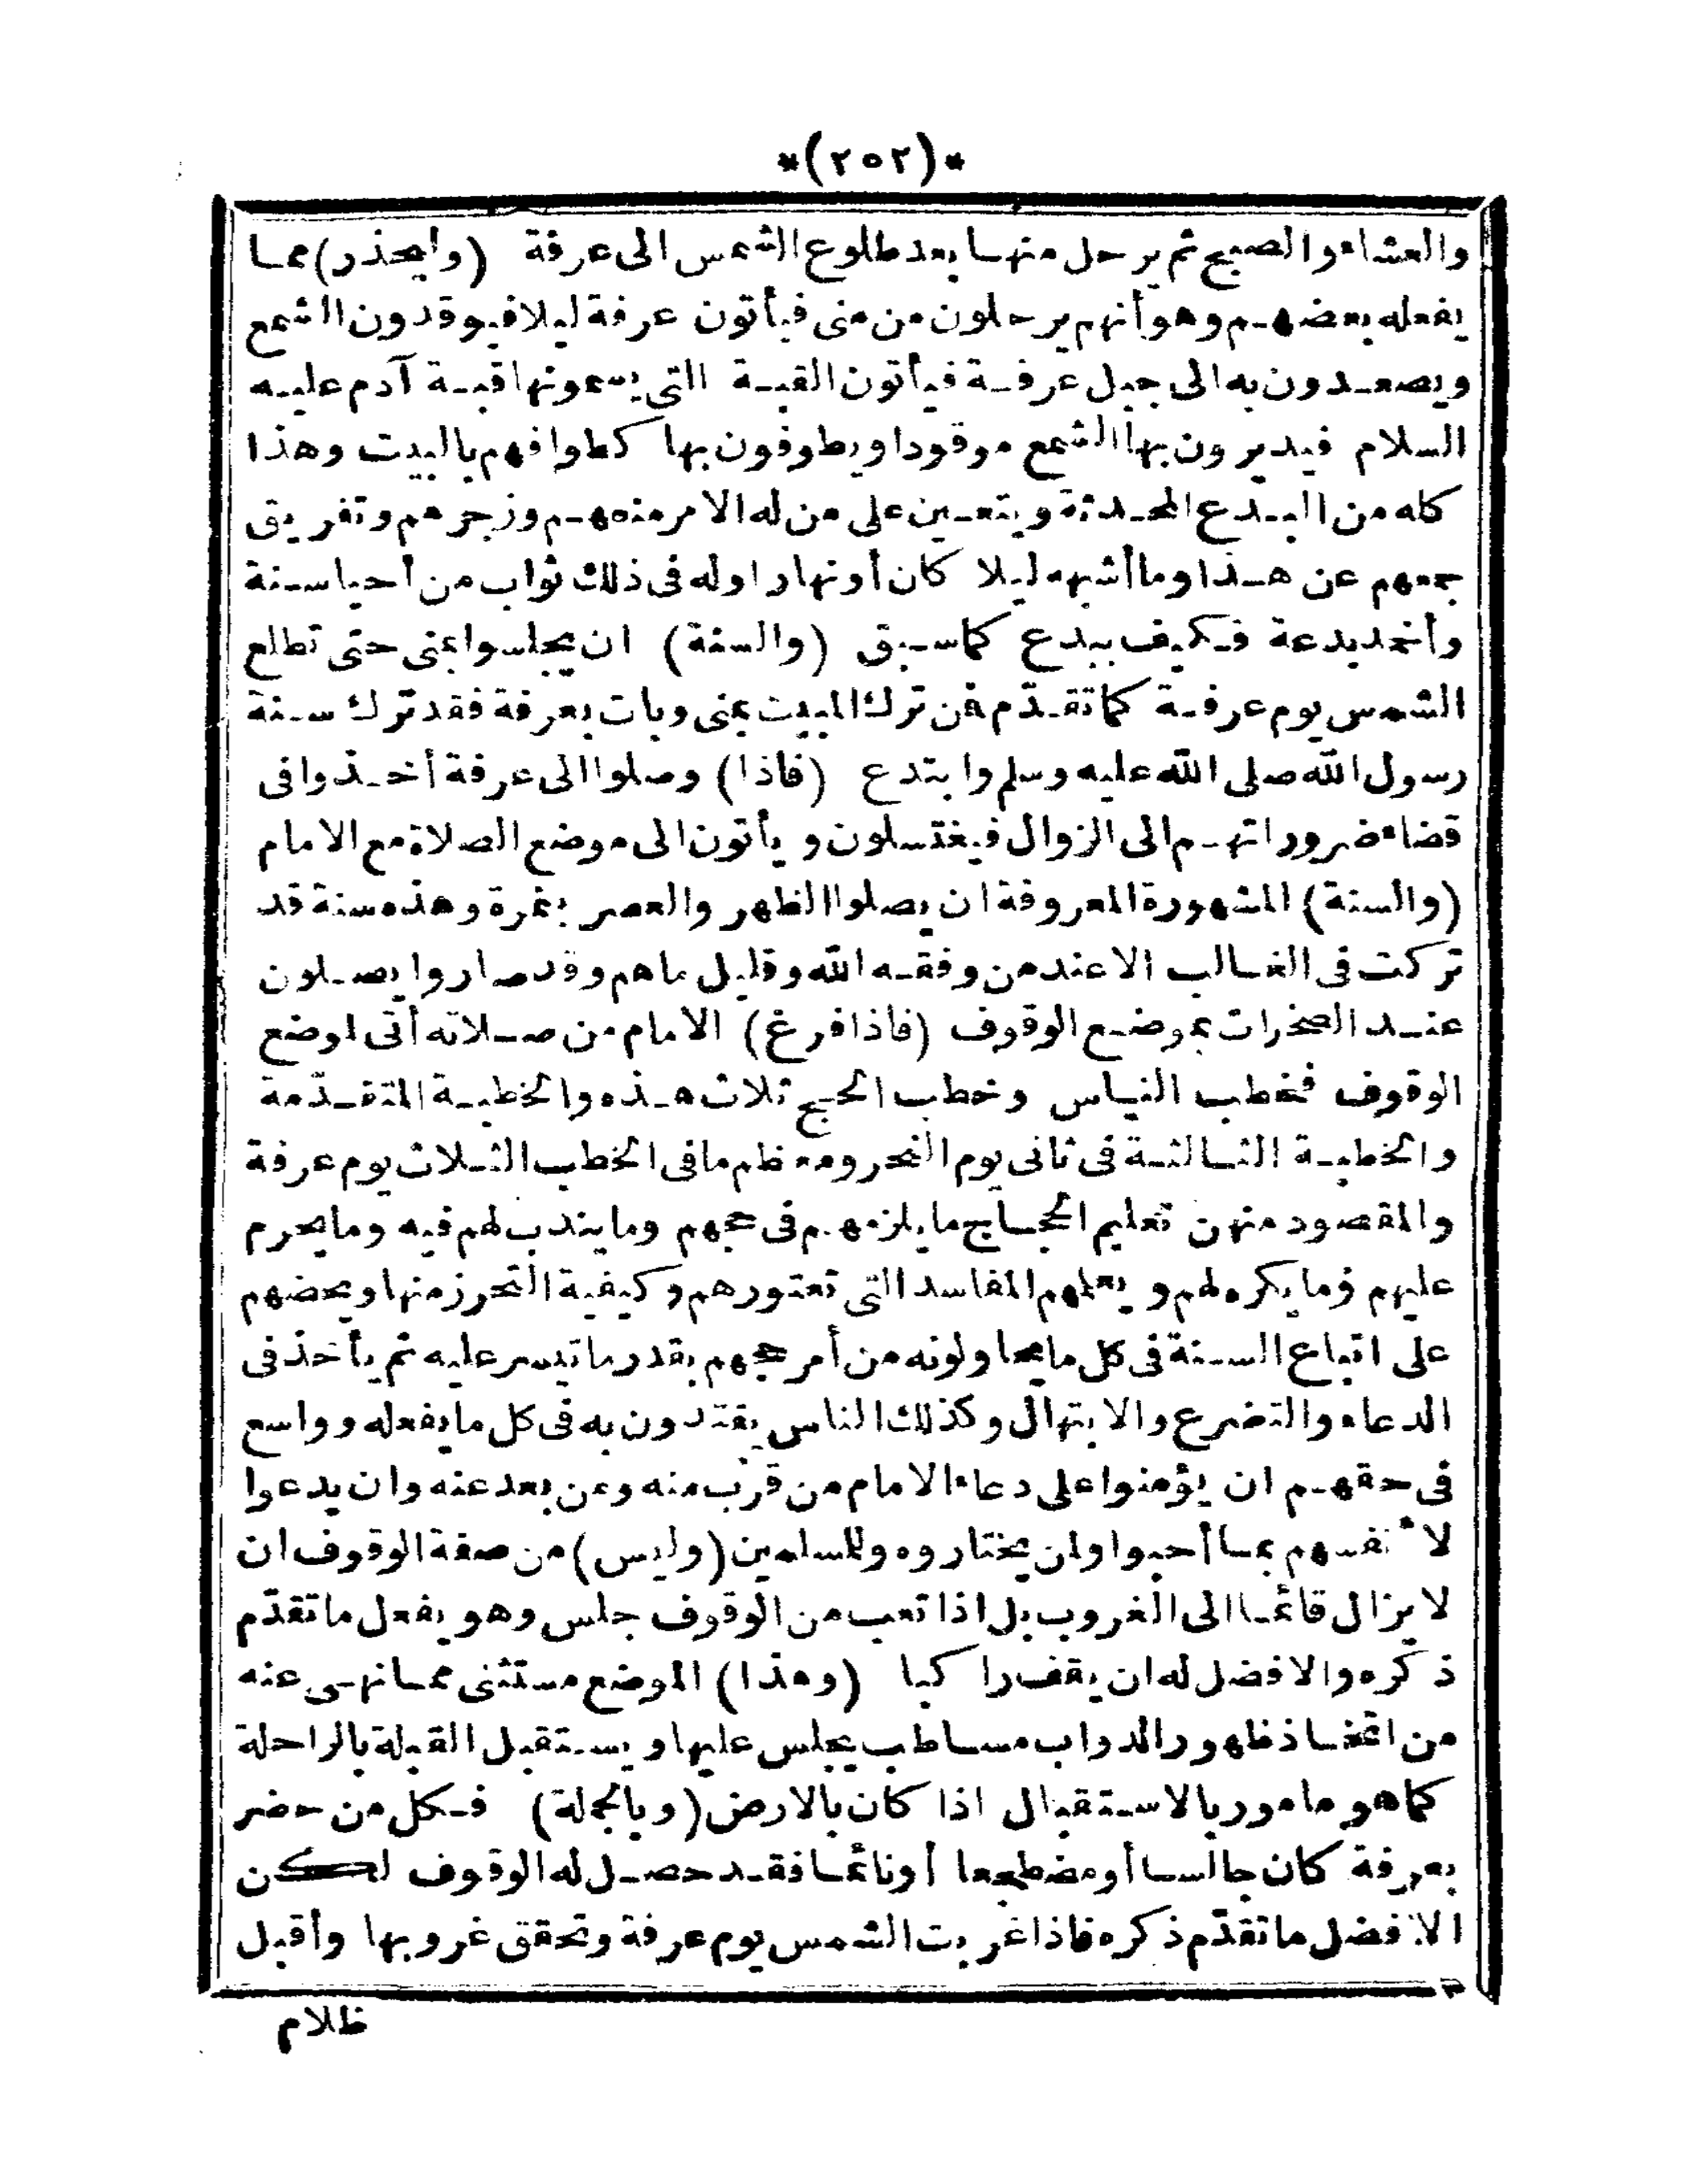 *(٢٥٢)*
والعشاء والصبح ثم يرحل منها بعد طلوع الشمس الى عرفة (وليحذر) مما
يفعله بعضهم وهو أنهم يرحلون من منى فيأتون عرفة ليلا فيوقدون الشمع
ويصعدون به الى جبل عرفة فيأتون القبة التى يسمونها قبة آدم عليه
السلام فيديرون بها الشمع موقودا ويطوفون بها كطوافهم بالبيت وهذا
كله من البدع المحدثة ويتعين على من له الامر منعهم وزجرهم وتفريق
جمعهم عن هذا وما أشبهه ليلا كان أو نهارا وله فى ذلك ثواب من أحيا سنة
وأخمد بدعة فكيف ببدع كما سبق (والسنة) ان يجلسوا بمنى حتى تطلع
الشمس يوم عرفة كما تقدّم فمن ترك المبيت بمنى وبات بعرفة فقد ترك سنة
رسول الله صلى الله عليه وسلم وابتدع (فاذا) وصلوا الى عرفة أخذوا فى
قضاء ضروراتهم الى الزوال فيغتسلون ويأتون الى موضع الصلاة مع الامام
(والسنة) المشهورة المعروفة ان يصلوا الظهر والعصر بنمرة وهذه سنة قد
تركت فى الغالب الا عند من وفقه الله وقليل ما هم وقد صاروا يصلون
عند الصخرات بموضع الوقوف (فاذا فرغ) الامام من صلاته أتى لموضع
الوقوف فخطب الناس وخطب الحج ثلاث هذه والخطبة المتقدّمة
والخطبة الثالثة فى ثانى يوم النحر ومعظم ما فى الخطب الثلاث يوم عرفة
والمقصود منهن تعليم الحجاج ما يلزمهم فى حجهم وما يندب لهم فيه وما يحرم
عليهم وما يكره لهم ويعلمهم المفاسد التى تعتورهم وكيفية التحرز منها ويحضهم
على اتباع السنة فى كل ما يحاولونه من أمر حجهم بقدر ما تيسر عليه ثم يأخذ فى
الدعاء والتضرع والابتهال وكذلك الناس يقتدون به فى كل ما يفعله وواسع
فى حقهم ان يؤمنوا على دعاء الامام من قرب منه ومن بعد عنه وان يدعوا
لا ٔنفسهم بما أحبوا ولمن يختاروه وللمسلمين (وليس) من صفة الوقوف ان
لا يزال قائما الى الغروب بل اذا تعب من الوقوف جلس وهو يفعل ما تقدّم
ذكره والافضل له ان يقف راكبا (وهذا) الموضع مستثنى مما نهى عنه
من اتخاذ ظهور الدواب مساطب يجلس عليها ويستقبل القبلة بالراحلة
كما هو مامور بالاستقبال اذا كان بالارض (وبالجملة) فكل من حضر
بعرفة كان جالسا أو مضطجعا أو نائما فقد حصل له الوقوف لكن
الافضل ما تقدّم ذكره فاذا غربت الشمس يوم عرفة وتحقق غروبها وأقبل
ظلام